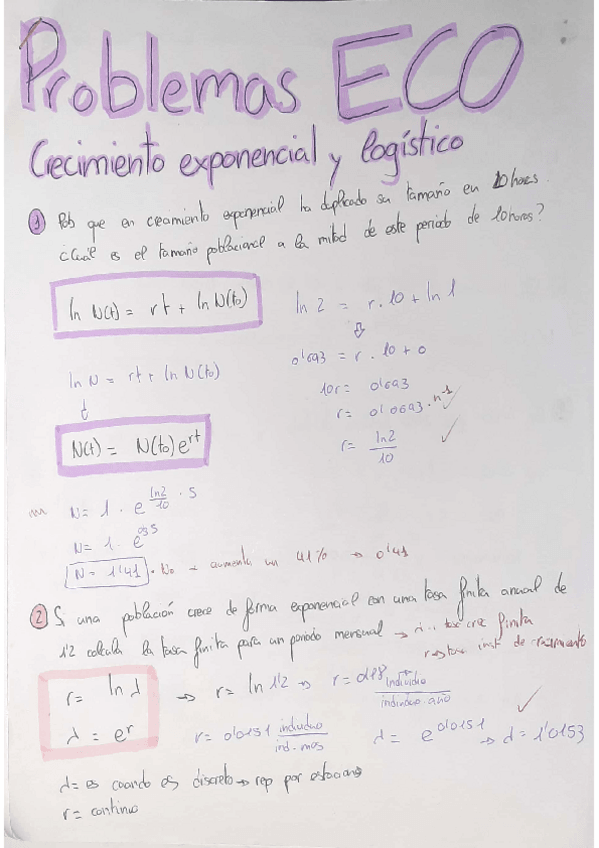 Problemas ECO
Crecimiento exponencial y logístico
1 Pob que en crecimiento exponencial ha duplicado su tamaño en 10 horas.
¿Cuál es el tamaño poblacional a la mitad de este periodo de 10 horas?
ln N(t) = rt + ln N(t₀)
ln 2 = r.10 + ln 1
⇩
0'693 = r . 10 + 0
10r = 0'693
r = 0'0693 . h⁻¹ ✓
r = ln2/10 ✓
ln N = rt + ln N(t₀)
N(t) = N(t₀) e^rt
N = 1 · e^(ln2/10 · 5)
N = 1 ·
N = 1'41 · N₀ → aumenta un 41% → 0'41
2 Si una población crece de forma exponencial con una tasa finita anual de
1'2 calcula la tasa finita para un periodo mensual → tasa crec finita
r → tasa inst de crecimiento
r = ln λ
λ = e^r
→ r = ln 1'2 → r = 0'18 individuo/individuo·año
r = 0'0151 individuo/ind·mes
λ = e^0'0151 → λ = 1'0153 ✓
λ = es cuando es discreto → rep por estaciones
r = continuo